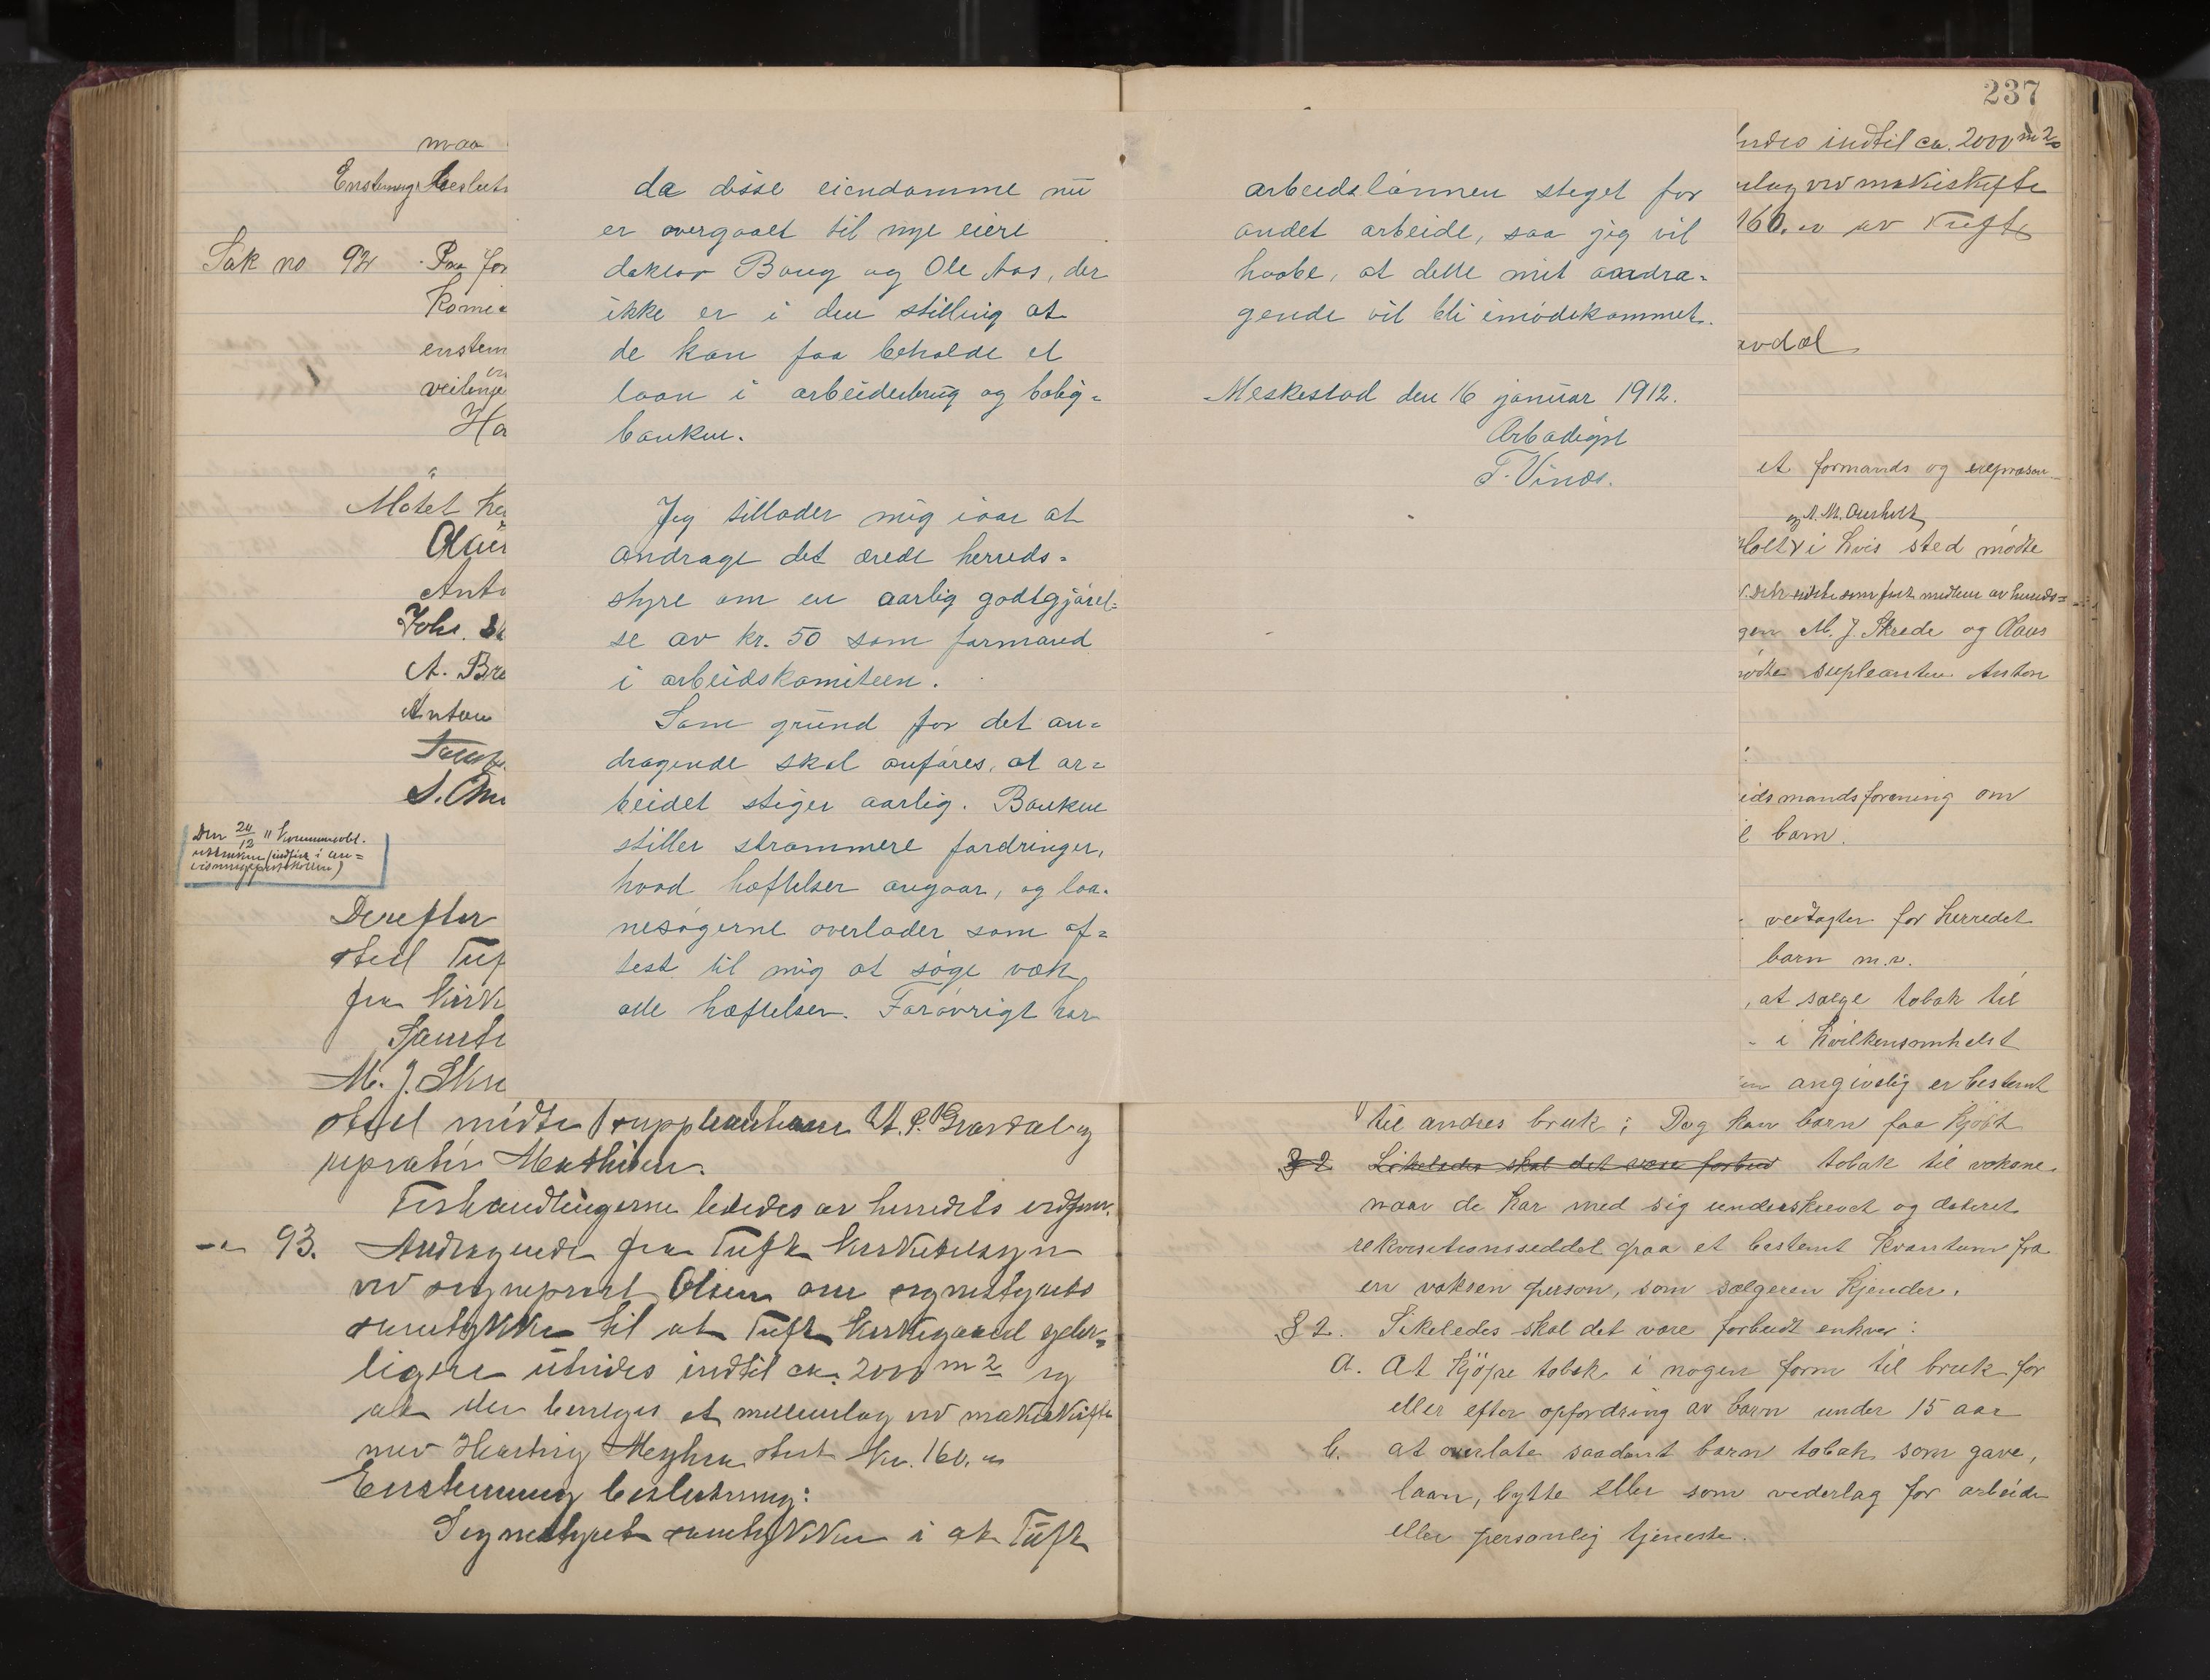 237
maa
Enstemmig beslutn
Sak no 92 Paa for
Komie
enstem
veilinje
Ha
Møtet he
Olau
Anto
Johs. Sk
A. Bre
Anton
S. Am
Den 24/12 11 kommunebl.
Derefter
sted Tuf
fra kirk
Samti
M. J. Skre
sted mødte suppleanterne A. P. Gravdal og
repræsen Mathisen.
Forhandlingerne lededes av herredets ordfører.
93. Andragende fra Tuft kirketilsyn
ved sogneprest Olsen om sognestyrets
samtykke til at Tuft kirkegaard yder-
ligere utvides indtil ca. 2000 m2 og
at der berriges et mellemlag ved makeskifte
med Hartvig Meyhra stort kr. 160.00
Enstemmig beslutning:
Sognestyret samtykker i at Tuft
da disse eiendomme nu
er overgaaet til nye eiere
doktor Boug og Ole Aas, der
ikke er i den stilling at
de kan faa beholde et
laan i arbeiderbrug og bolig-
banken.
Jeg tillader mig ivar at
andrage det ærede herreds-
styre om en aarlig godtgjørel-
se av kr. 50 som formand
i arbeidskomiteen.
Som grund for det an-
dragende skal anføres, at ar-
beidet stiger aarlig. Banken
stiller strammere fordringer,
hvad hæftelser angaar, og laa-
nesøgerne overlader som of-
test til mig at søge væk
alle hæftelser. Forøvrigt har
arbeidslønnen steget for
andet arbeide, saa jeg vil
haabe, at dette mit andra-
gende vil bli imødekommet.
Meskestad den 16 januar 1912.
Ærbødigst
T. Vinæs.
ndes indtil ca. 2000 m2
lag ved makeskifte
160.00 av Tufte
avdal
et formands og repræsen-
og A. M. Ousholt
holt i hvis sted mødte
gen M. J. Skrede og Olaus
mødte supleanten Anton
idsmandsforening om
barn.
vedtagter for herredet
barn m.v.
, at sælge tobak til
i hvilkensomhelst
angivelig er bestemt
til andres bruk; Dog kan barn faa kjøbt
§ 2 Likeledes skal det være forbud tobak til voksne
naar de har med sig underskrevet og dateret
rekvisitionsseddel paa et bestemt kvantum fra
en voksen person, som sælgeren kjender.
§ 2. Likeledes skal det være forbudt enhver:
a. At kjøpe tobak i nogen form til bruk for
eller efter opfordring av barn under 15 aar
b. at overlate saadant barn tobak som gave,
laan, bytte eller som vederlag for arbeide
eller personlig tjeneste.